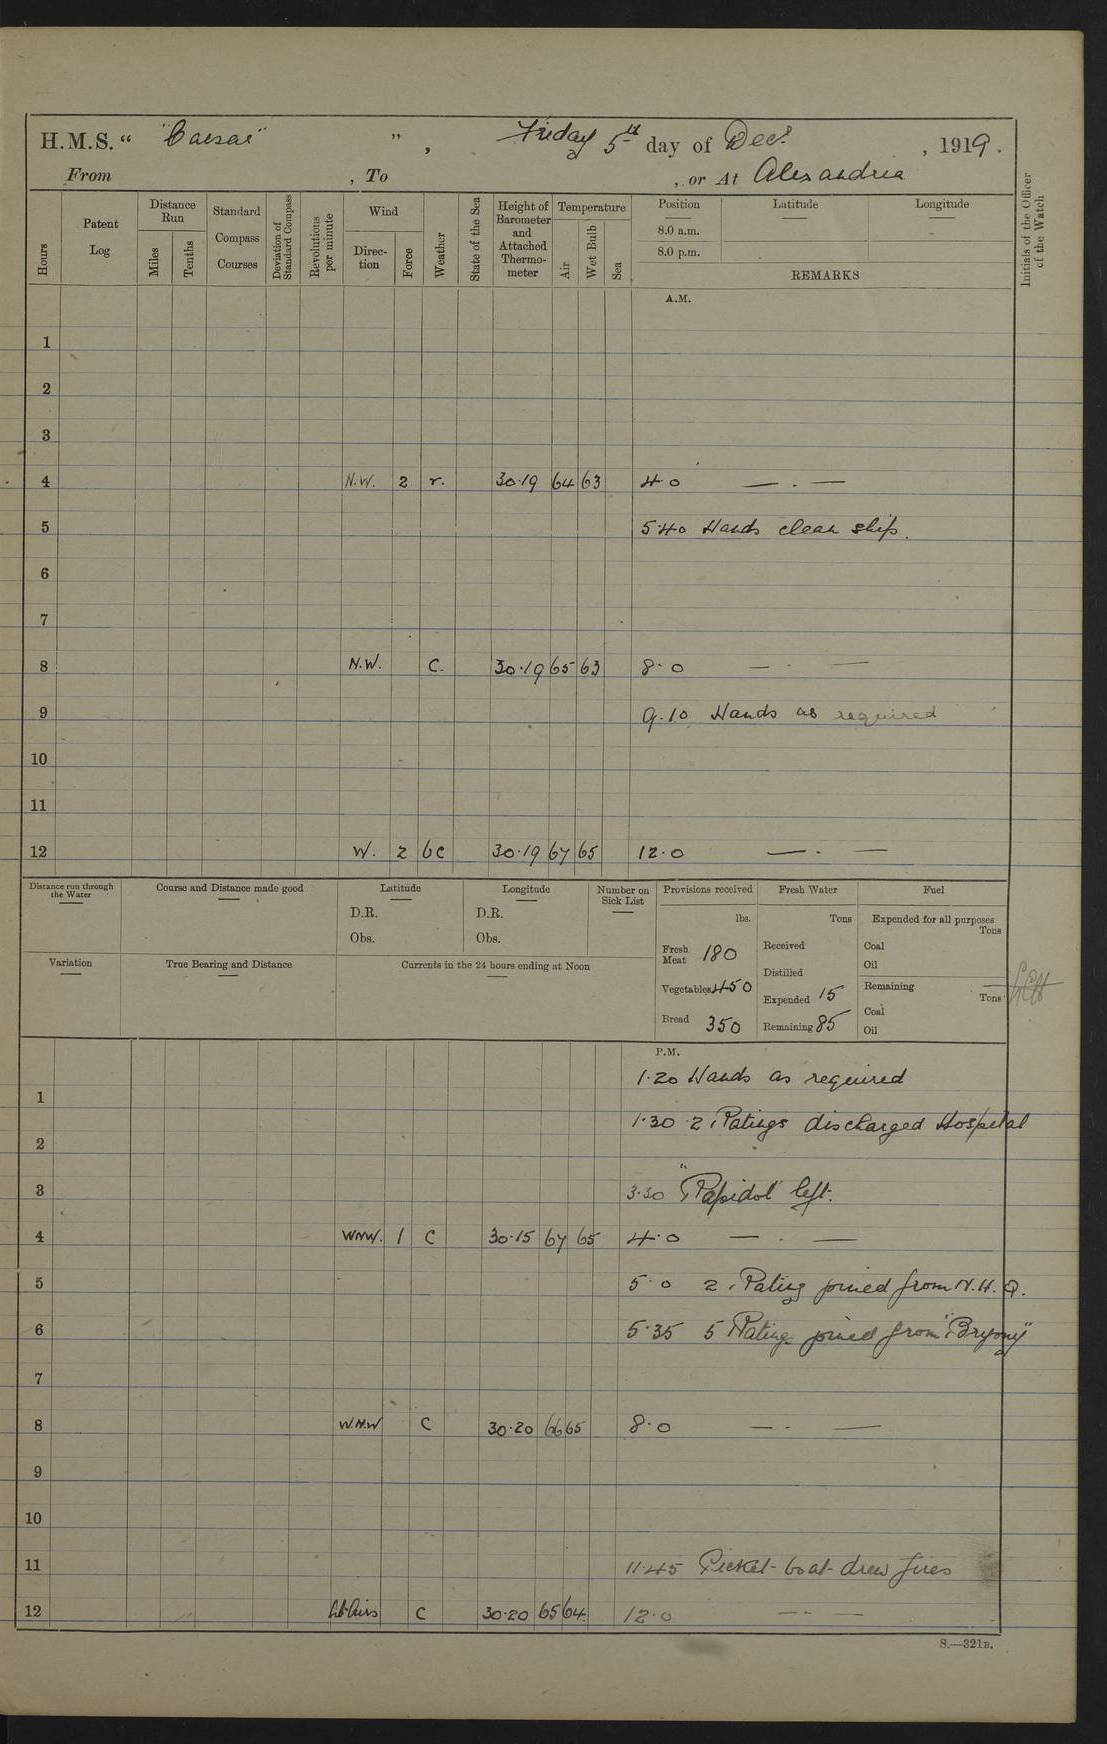 H.M.S. " "Caesar" ", Friday 5th day of Decr , 1919.
From , To , or At Alexandria
Hours
Patent Log
Distance Run
Miles
Tenths
Standard Compass Courses
Deviation of Standard Compass
Revolutions per minute
Wind
Direction
Force
Weather
State of the Sea
Height of Barometer and Attached Thermometer
Temperature
Air
Wet Bulb
Sea
Position Latitude Longitude
8.0 a.m.
8.0 p.m.
REMARKS
Initials of the Officer of the Watch
A.M.
1
2
3
4 N.W. 2 r. 30.19 64 63 4.0 — . —
5 5.40 Hands clean ship.
6
7
8 N.W. C. 30.19 65 63 8.0 — . —
9 9.10 Hands as required
10
11
12 W. 2 bc 30.19 67 65 12.0 — . —
Distance run through the Water
Course and Distance made good
Latitude
D.R.
Obs.
Longitude
D.R.
Obs.
Number on Sick List
Provisions received
lbs.
Fresh Meat 180
Vegetables 450
Bread 350
Fresh Water
Tons
Received
Distilled
Expended 15
Remaining 85
Fuel
Expended for all purposes
Tons
Coal
Oil
Remaining
Tons
Coal
Oil
Variation
True Bearing and Distance
Currents in the 24 hours ending at Noon
P.M.
1.20 Hands as required
1
1.30 2 Ratings discharged Hospital
2
3 3.30 "Rapidol" left.
4 WNW. 1 C 30.15 67 65 4.0 — . —
5 5.0 2 Rating joined from N.H.Q.
6 5.35 5 Ratings joined from "Bryony"
7
8 W.N.W C 30.20 66 65 8.0 — . —
9
10
11 11.45 Picket-boat drew fires
12 Lt. Airs C 30.20 65 64 12.0 — . —
S.—321B.